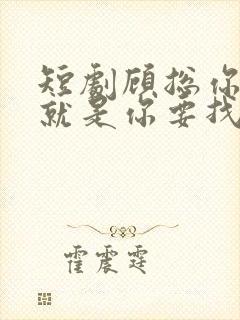 短劇顾总你
就是你要找
霍震霆